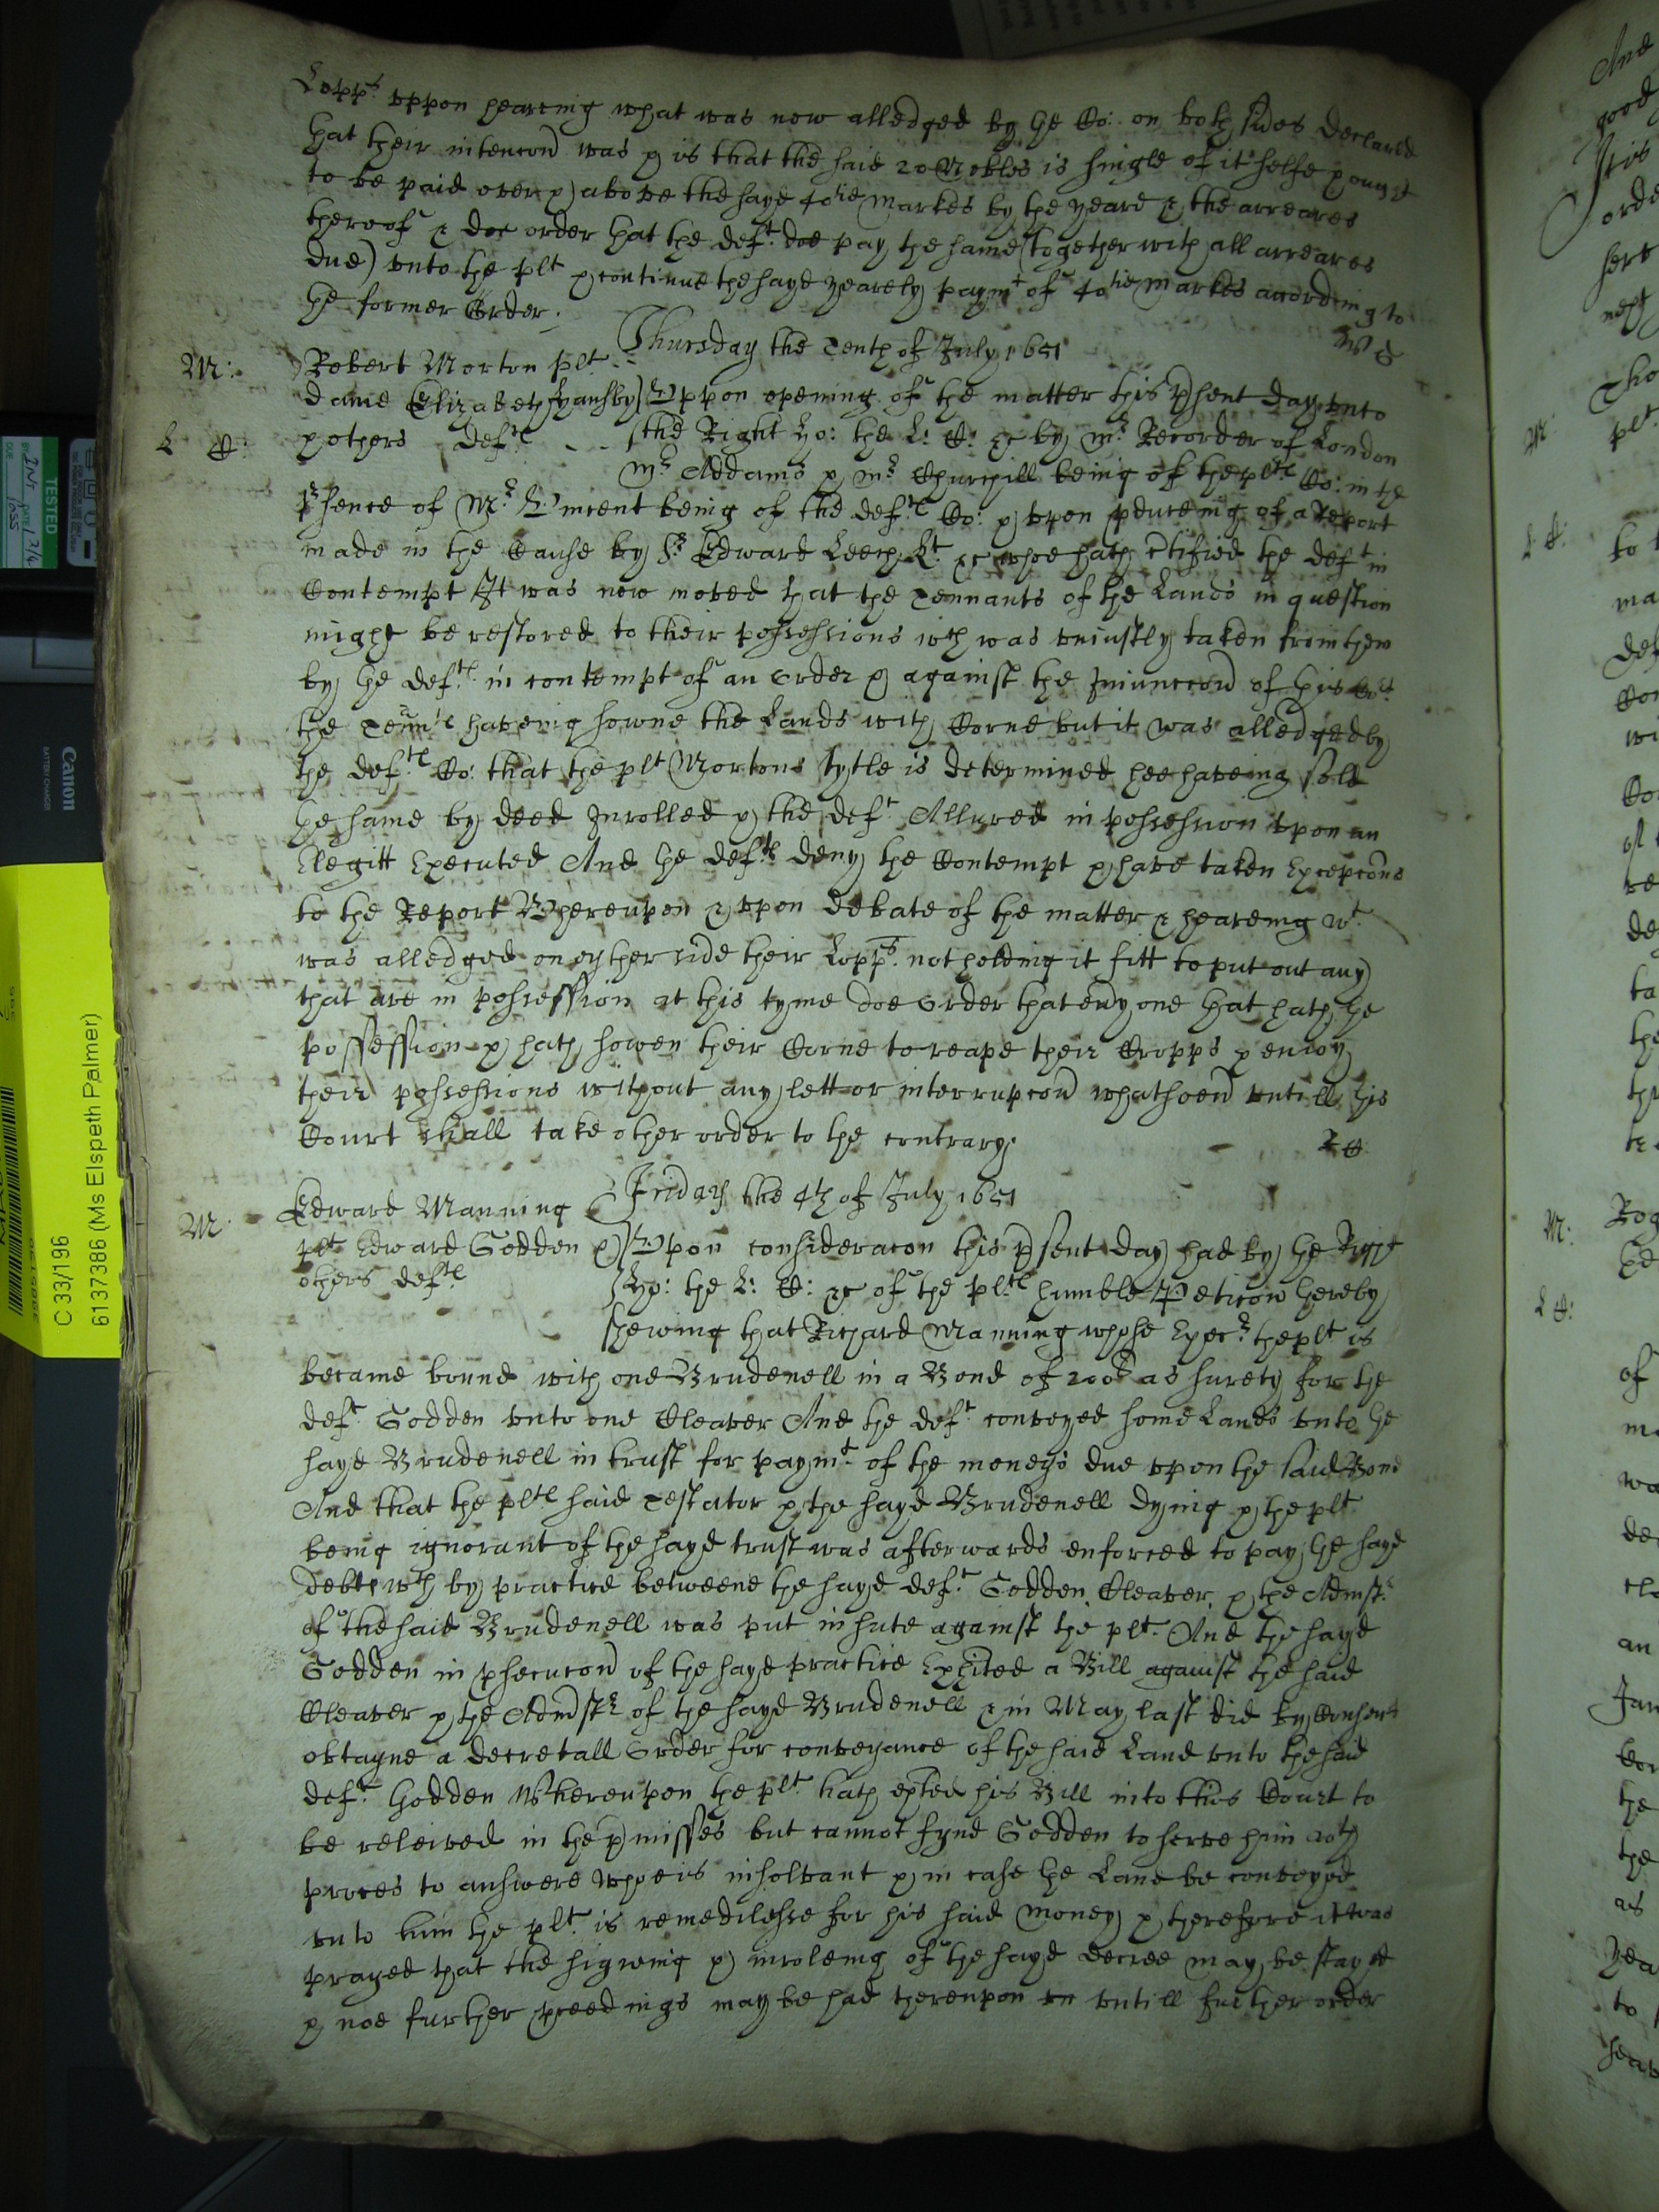 Lopps. uppon heareing what was now alledged by the Co: on both sides declared
that their intencon was & is that the said 20 Nobles is single of it selfe & ought
to be paid over & above the sayd 40tie markes by the yeare & the arreares
thereof & doe order that the deft. doe pay the same (together with all arreares
due) unto the plt & continue the sayd yearely paymt of 40tie markes according to
the former Order.
Thursday the Tenth of July 1651
M: Robert Morton plt
dame Elizabeth Fyansby Uppon opening of the matter this psent day unto
L C: & others deftes the Right Ho: the L: C: &c by Mr Recorder of London
Mr Addams & Mr Churchill being of the pltes Co: in the
psence of Mr. Vincent being of the deftes Co: & upon pduceing of a Report
made in the Cause by Sr Edward Leech Kt &c whoe hath ctified the deft in
Contempt It was now moved that the Tennants of the Lands in question
might be restored to their possessions wch was uniustly taken from them
by the deftes in contempt of an Order & against the Iniunccon of this Cort
the Tenntes haveing sowne the Lands with Corne but it was alledged by
the deftes Co: that the plt Mortons tytle is determined hee haveing sold
the same by deed Inrolled & the deft Allured in possession upon an
Elegitt Executed And the deftes deny the Contempt & have taken Excepcons
to the Report Whereupon & upon debate of the matter & heareing wt
was alledged on eyther side their Lopps. not holding it fitt to put out any
that are in possession at this tyme doe Order that evy one that hath the
possession & hath sowen their Corne to reape their Cropps & enioy
their possessions without any lett or interrupcon whatsoevr untill this
Court shall take other order to the contrary.
Friday the 4th of July 1651
M Edward Manning
plt Edward Godden & Upon consideracon this psent day had by the Right
others deftes Ho: the L: C: &c of the pltes humble Peticon thereby
shewing that Richard Manning whose Execr. the plt is
became bound with one Brudenell in a Bond of 200l as surety for the
deft. Godden unto one Cleaver And the deft conveyed some Lands unto the
sayd Brudenell in trust for paymt. of the moneys due upon the said Bond
And that the pltes said Testator & the sayd Brudenell dying & the plt
being ignorant of the sayd trust was afterwards enforced to pay the sayd
debte wch by practice betweene the sayd deft. Godden, Cleaver, & the Admstr.
of the said Brudenell was put in sute against the plt. And the sayd
Godden in psecucon of the sayd practice Exhited a Bill against the said
Cleaver & the Admstr of the sayd Brudenell & in May last did by Consent
obtayne a decretall Order for conveyance of the said Land unto the said
deft. Godden Whereupon the plt. hath exhted his Bill into this Court to
be releived in the pmisses but cannot fynd Godden to serve him wth
proces to answere whoe is insolvant & in case the Land be conveyed
unto him the plt. is remedilesse for his said money & therefore it was
prayed that the signeing & inroleing of the sayd decree may be stayed
& noe further pceedings may be had thereupon un untill further order
TESTED
Canon
BATTERY CHARGER
C 33/196
6137386 (Ms Elspeth Palmer)